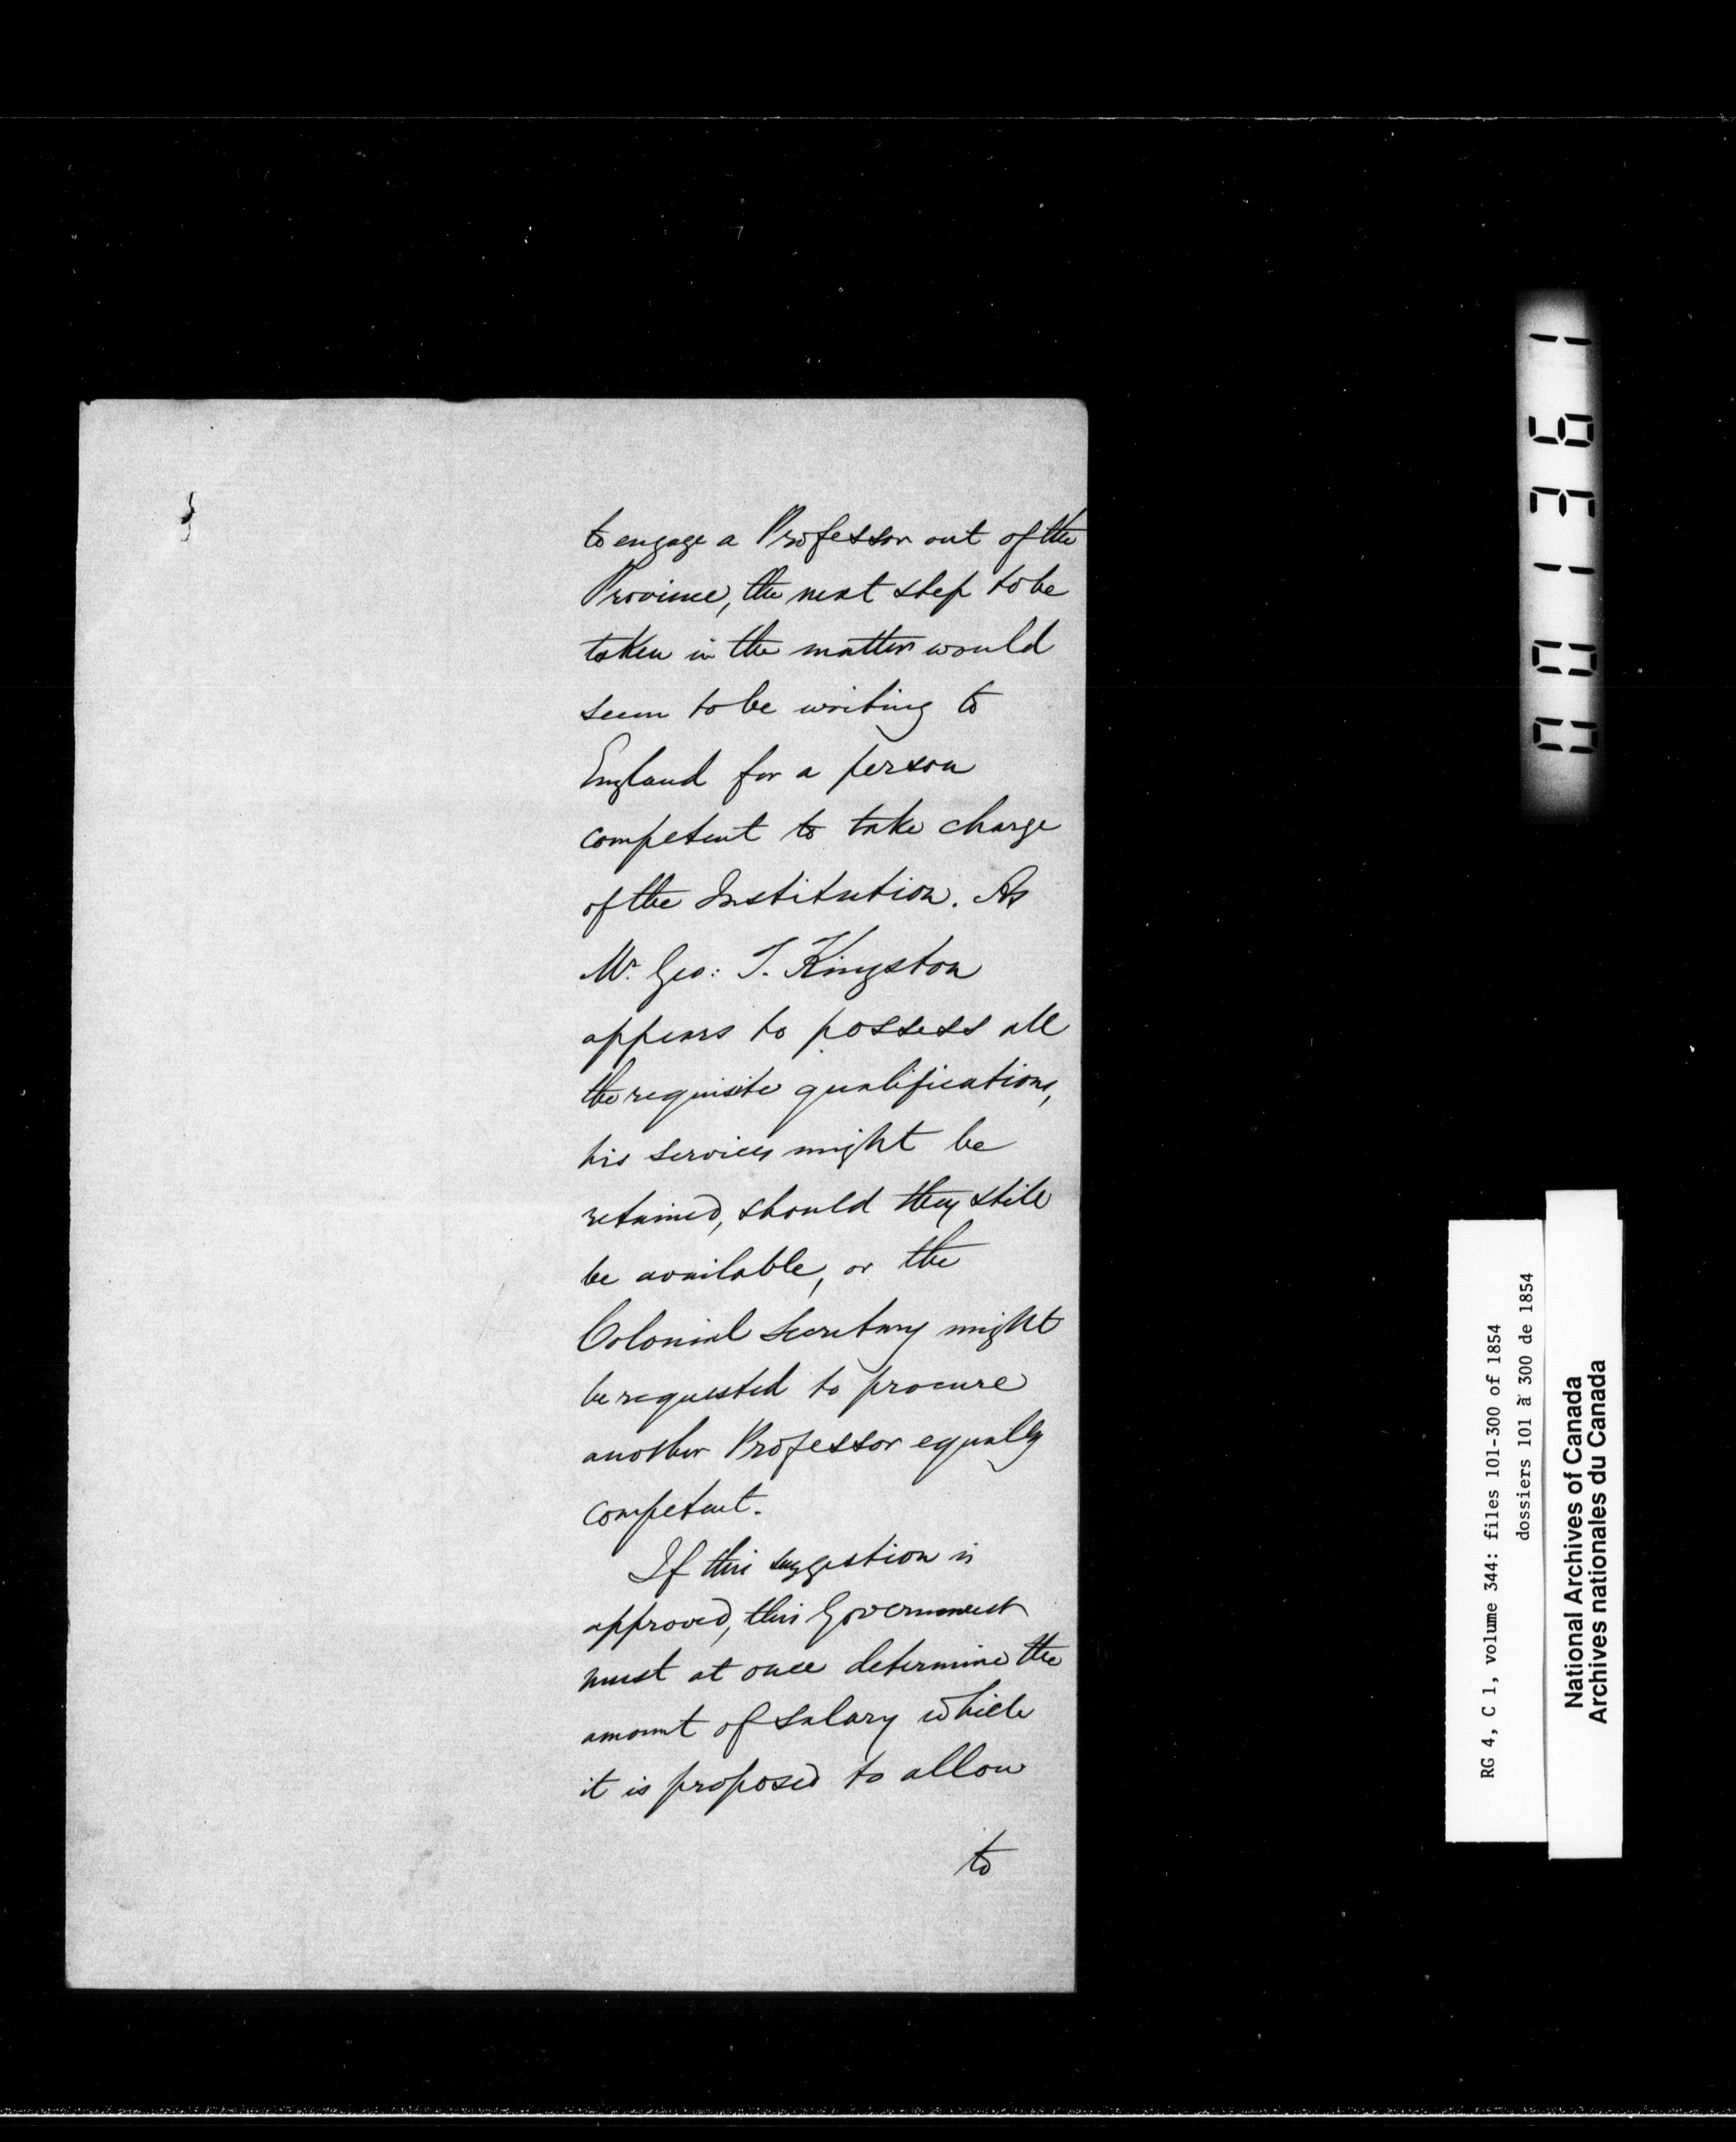 to engage a Professor out of the
Province, the next step to be
taken in the matter would
seem to be writing to
England for a person
competent to take charge
of the Institution. As
Mr. Geo: T. Kingston
appears to possess all
the requisite qualifications,
his services might be
retained, should they still
be available, or the
Colonial Secretary might
be requested to procure
another Professor equally
competent.
If this suggestion is
approved, this Government
must at once determine the
amount of salary which
it is proposed to allow
to
001361
RG 4, C 1, volume 344: files 101-300 of 1854
dossiers 101 à 300 de 1854
National Archives of Canada
Archives nationales du Canada